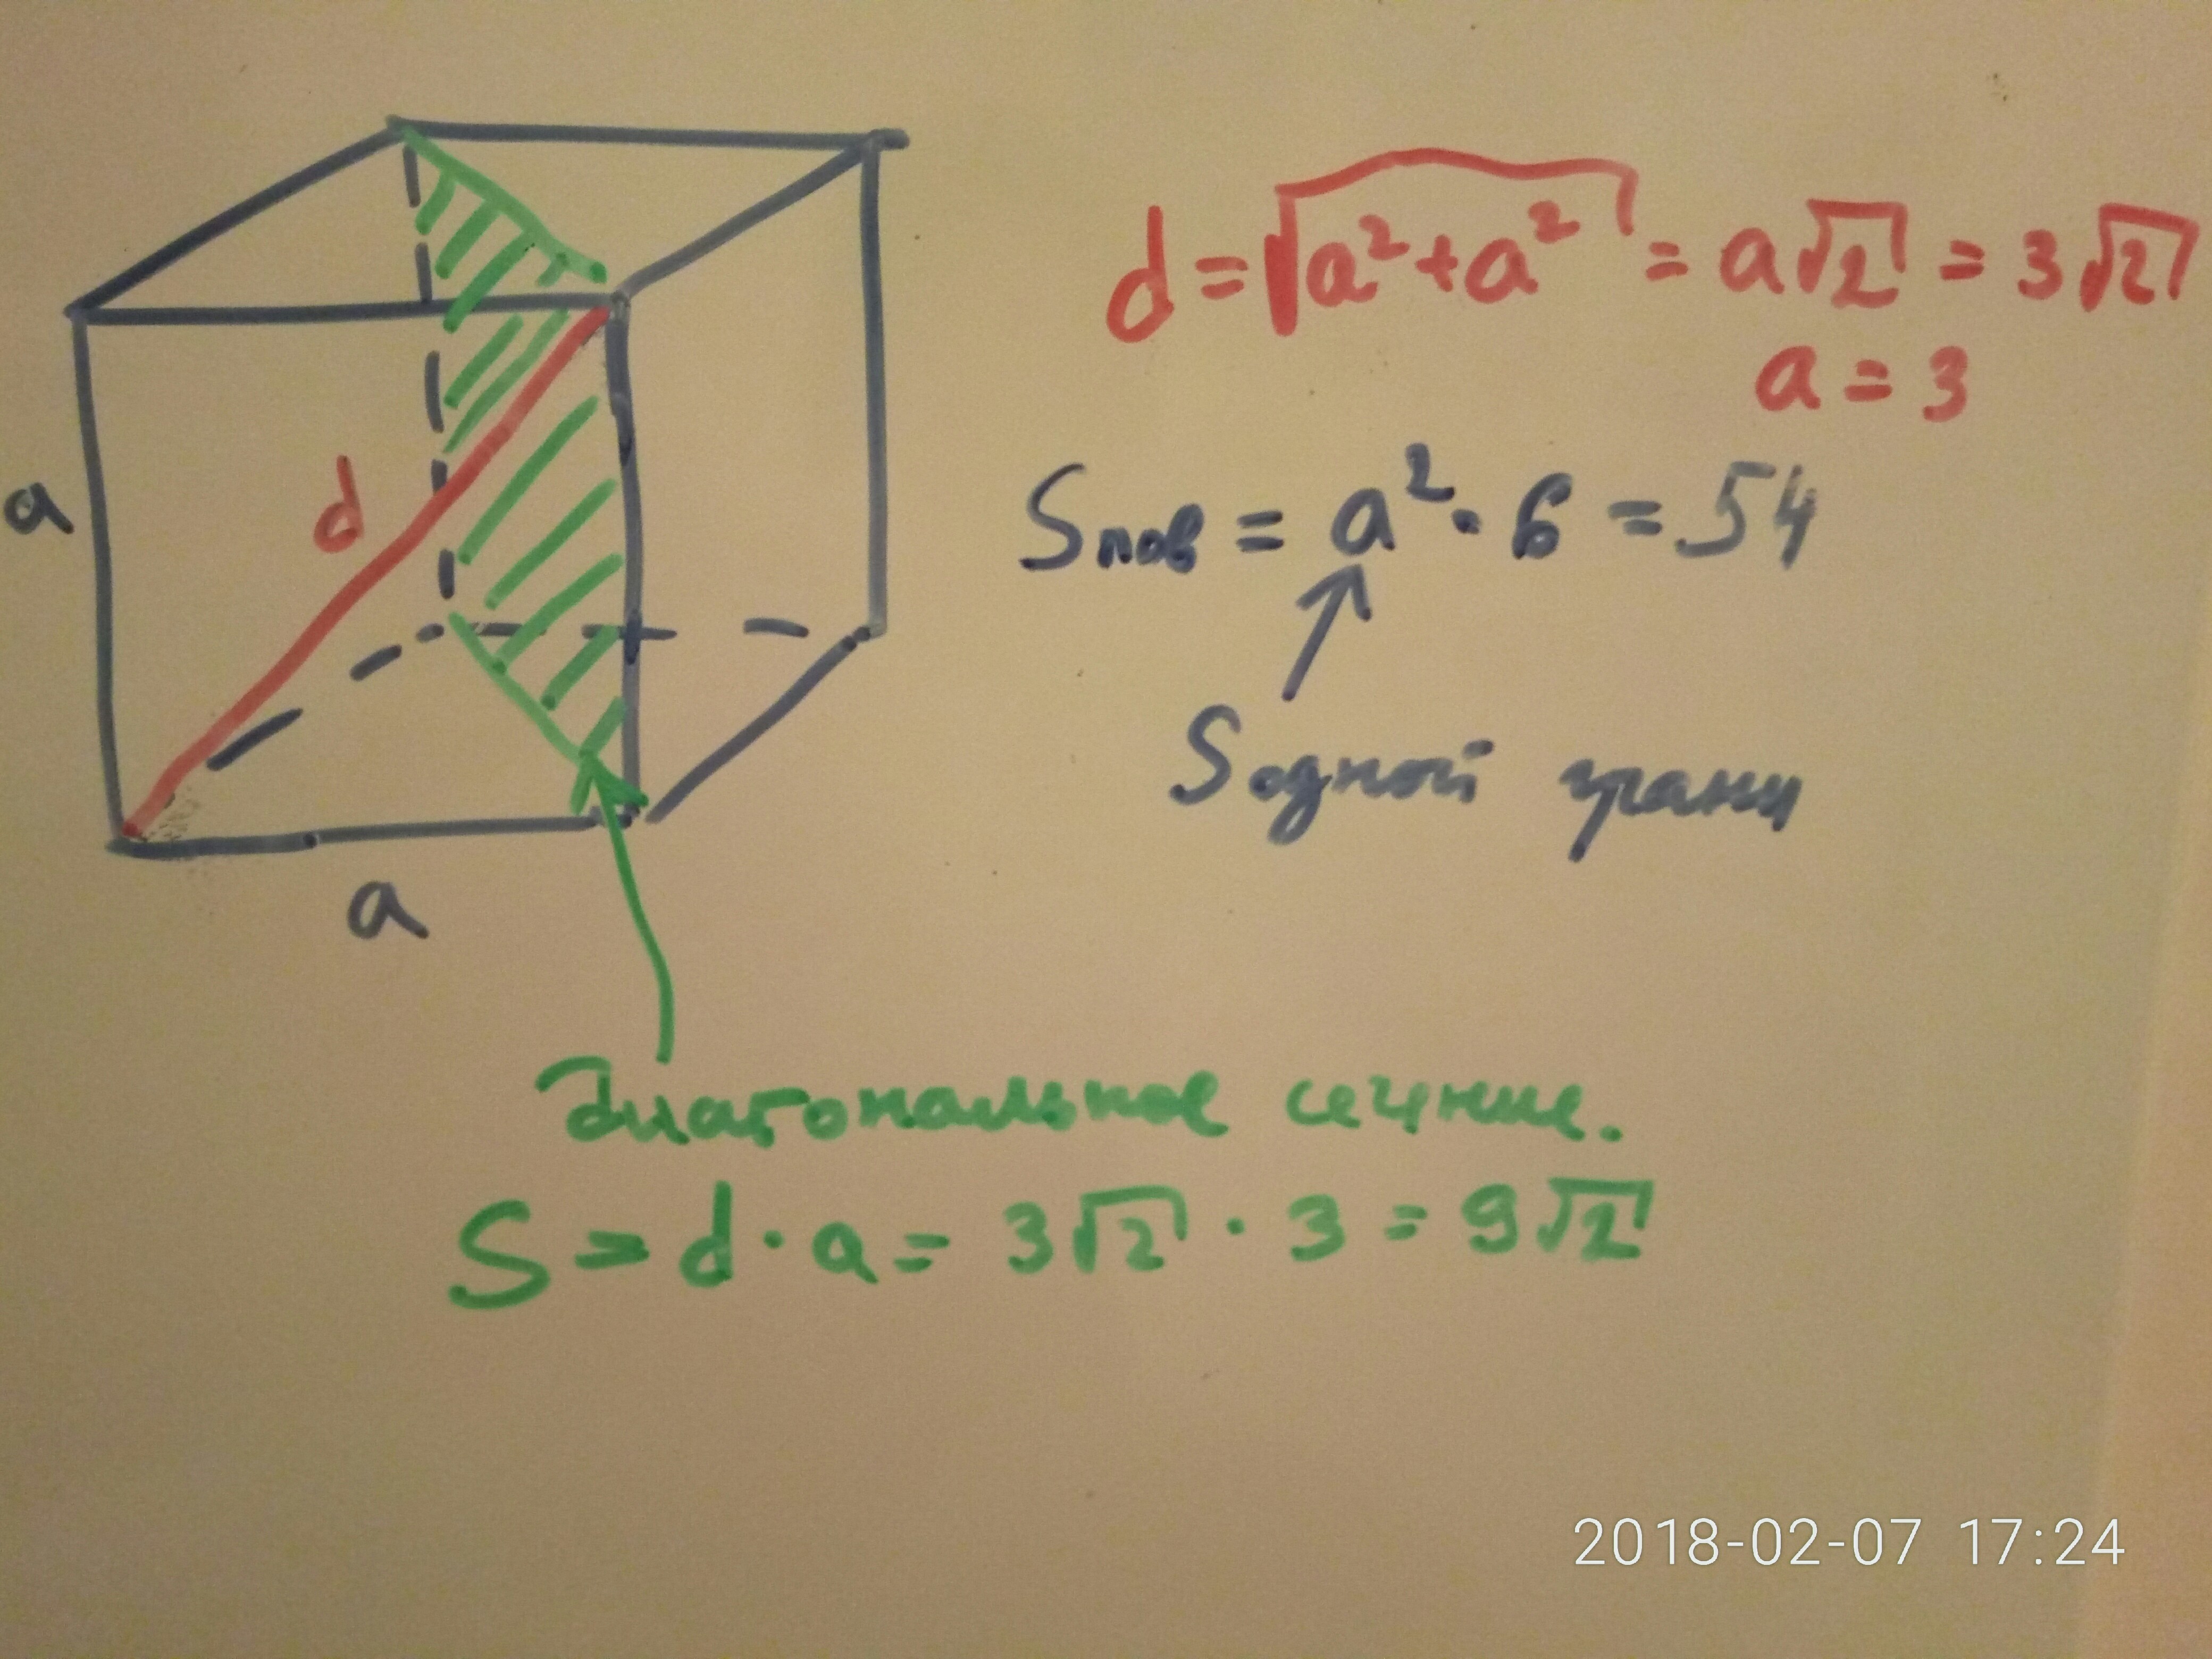 d = √a²+a² = a√2 = 3√2
a = 3
a
d
Sпов = a² · 6 = 54
Sодной грани
a
Диагональное сечение.
S = d · a = 3√2 · 3 = 9√2
2018-02-07 17:24